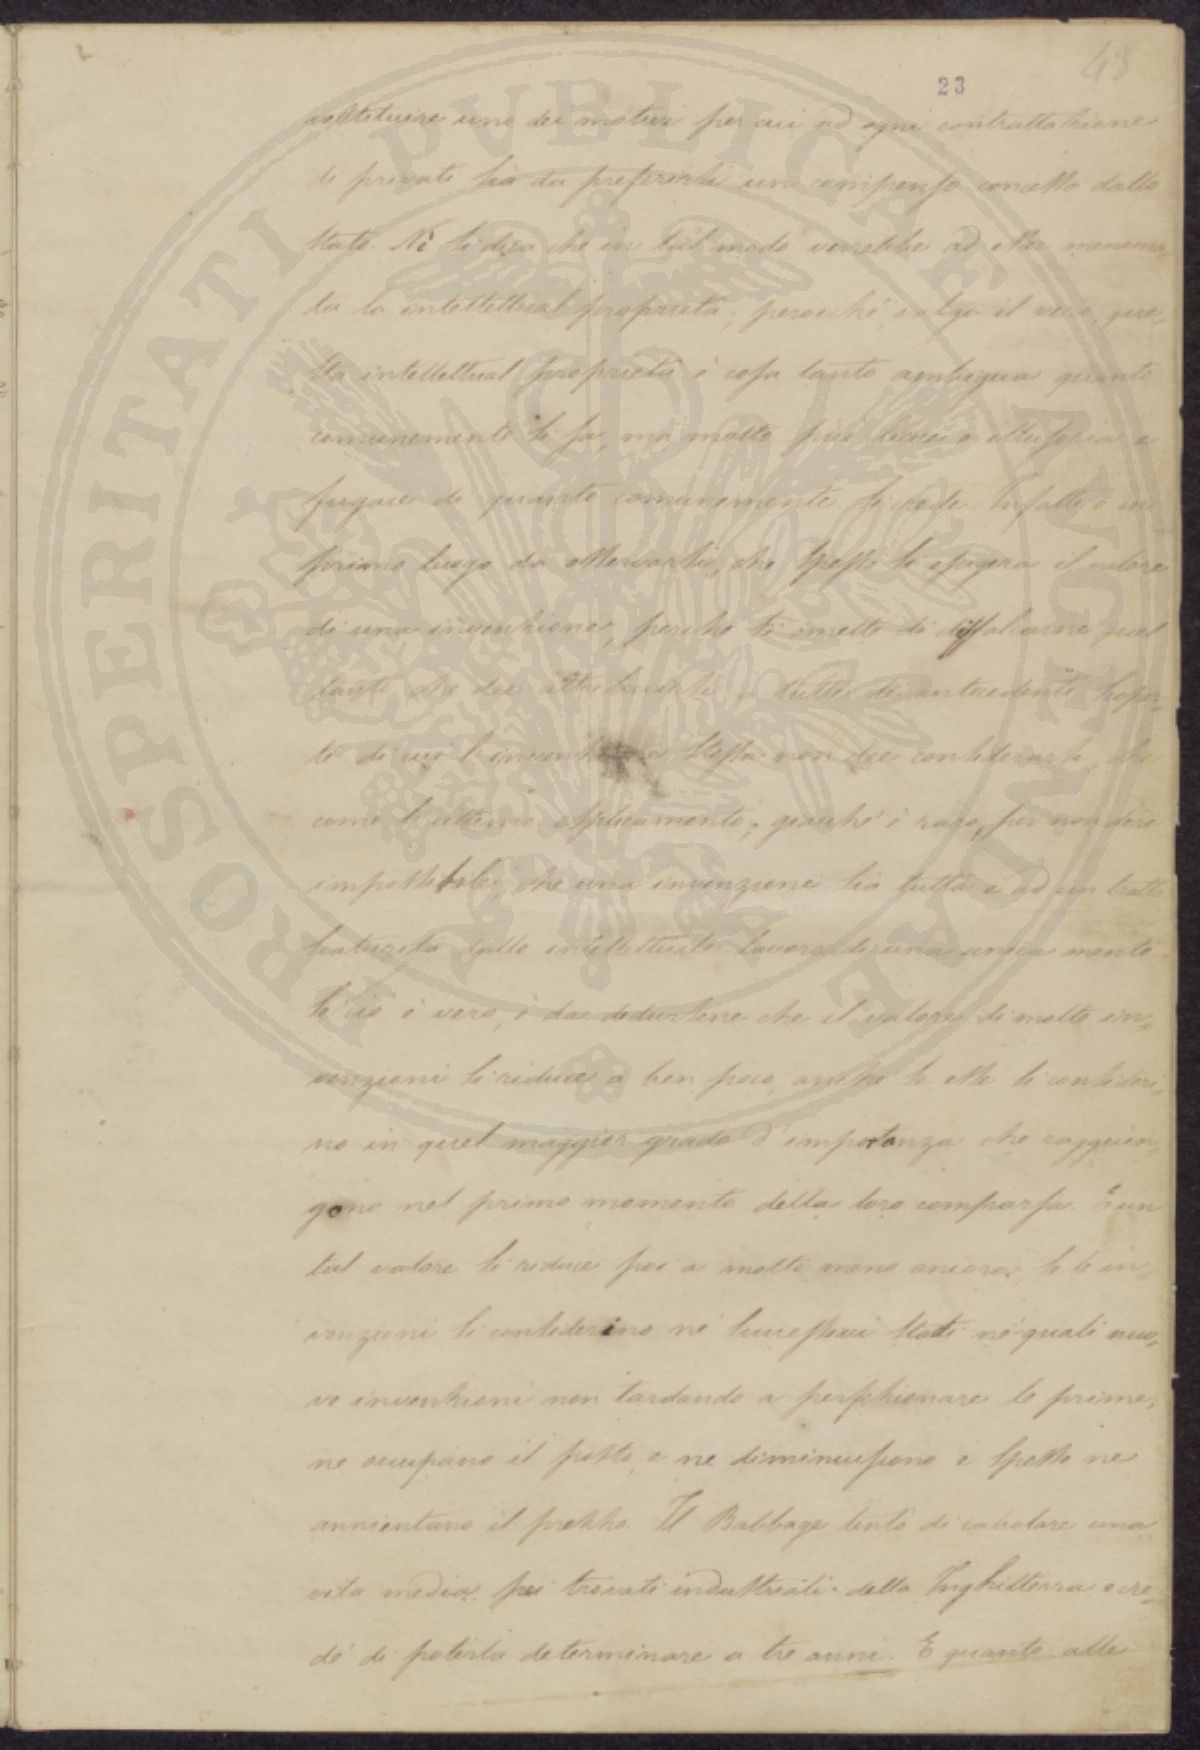 43
23
costituire uno dei motivi per cui ad ogni contrattazione
di privati sia da preferirsi un compenso concesso dallo
Stato. Nè si dica che in tal modo verrebbe ad esser menoma-
ta la intellettual proprietà; perocchè, valga il vero, que-
sta intellettual proprietà è cosa tanto ambigua quanto
comunemente si sa, ma molto più lieve e e
fugace di quanto comunemente si crede. Infatti è in
primo luogo da osservarsi, che spesso si esagera il valore
di una invenzione, perchè si omette di diffalcarne quel
tanto che dee attribuirsi a tutte le antecedenti scoper-
te di cui l'invenzione stessa non dee considerarsi, che
come l'ultimo esplicamento; giacchè è raro, per non dire
impossibile, che una invenzione sia tutta e ad un tratto
scaturita dallo intellettuale lavoro di una unica mente.
Se ciò è vero, è da dedursene che il valore di molte in-
venzioni si riduce a ben poco, anche se esse si consideri-
no in quel maggior grado d'importanza che raggiun-
gono nel primo momento della loro comparsa. E un
tal valore si riduce poi a molto meno ancora, se le in-
venzioni si considerino ne' successivi stadi ne' quali nuo-
ve invenzioni non tardando a perfezionare le prime,
ne occupano il posto, e ne diminuiscono e spesso ne
annientano il prezzo. Il Babbage tentò di calcolare una
vita media pei trovati industriali della Inghilterra e cre-
dè di poterla determinare a tre anni. E quanto alle
PROSPERITATI PVBLICAE AVGENDAE